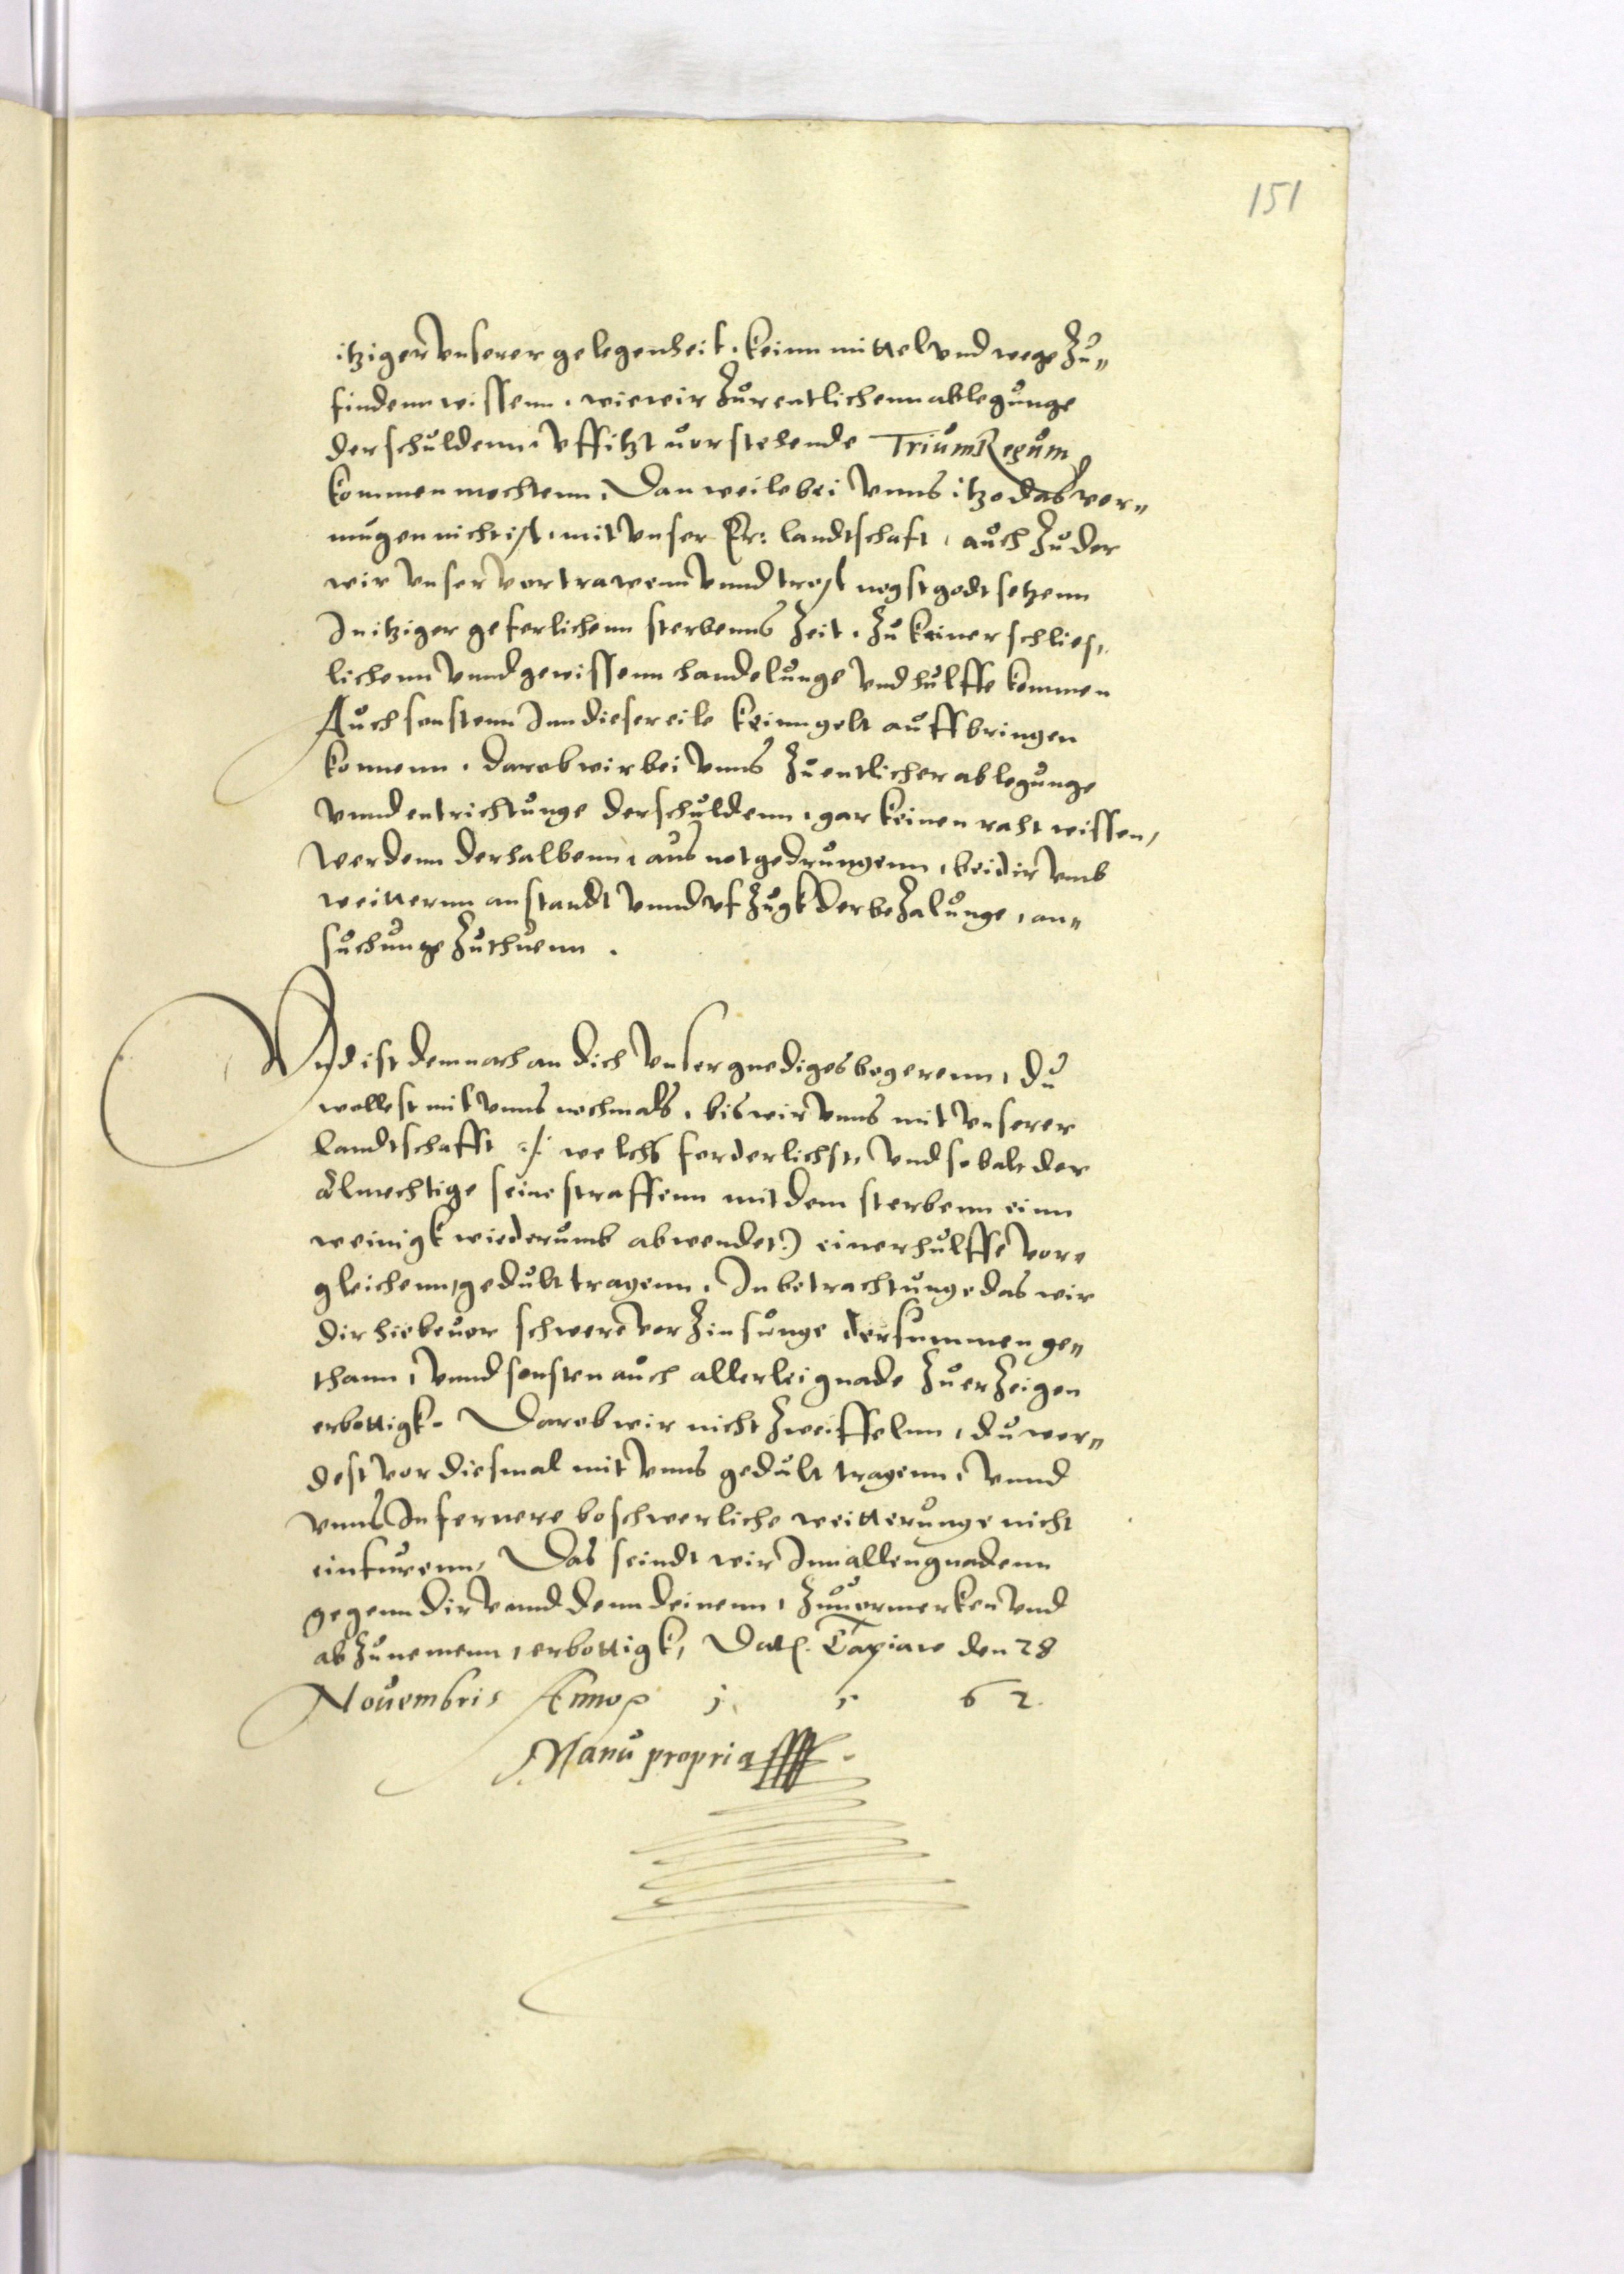 151
itziger vnserer gelegenheit, keinn mittel vnd wege zu„
findenn wissenn, wie wir zur entlichenn ablegunge
der schuldenn, vff itzt uorstehende Trium Regum
kommen mochtenn, Dan weile bei vnns itzo das vor„
mugen nicht ist, mit vnser Er: landtschaft, auch zu der
wir vnser vertrawenn vnnd trost negst godt setzenn
In itziger geferlichenn sterbenns Zeit, zu keiner schlies„
lichenn vnnd gewissenn handelunge vnd hulffe kommen
Auch sonstenn Inn dieser eile keinn gelt auffbringen
konnenn, darob wir bei vnns zu entlicher ablegunge
vnnd entrichtunge der schuldenn, gar keinen raht wissen,
werdenn derhalbenn, aus not gedrungenn, bei dir vmb
weitternn anstandt vnnd vfzugk der bezalunge, an„
suchunge zuthuenn.
Vnd ist demnach an dich vnser gnediges begerenn, du
wollest mit vnns nochmals, bis wir vnns mit vnserer
landtschafft :/: welchs forderlichst, vnd so balt der
almechtige seine straffenn mit dem sterbenn einn
weinigk wiederumb abwendet:) einer hulffe vor„
gleichenn, gedult tragenn, In betrachtunge das wir
dir hiebeuor schwere vorzinsunge der summen ge„
thann, vnnd sonsten auch allerlei gnade zu erzeigen
erbottigk. Darob wir nicht zweiffelnn, du wer„
dest vor diesmal mit vnns gedult tragenn, vnnd
vnns In fernere beschwerliche weitterunge nicht
einfurenn, Das seindt wir Inn allen gnadenn
gegenn dir vnnd denn deinenn, zuuormerken vnd
abzunemenn, erbottigk, Datt. Tapiaw den 28
Nouembris Anno 1 5 6 2.
Manu propria